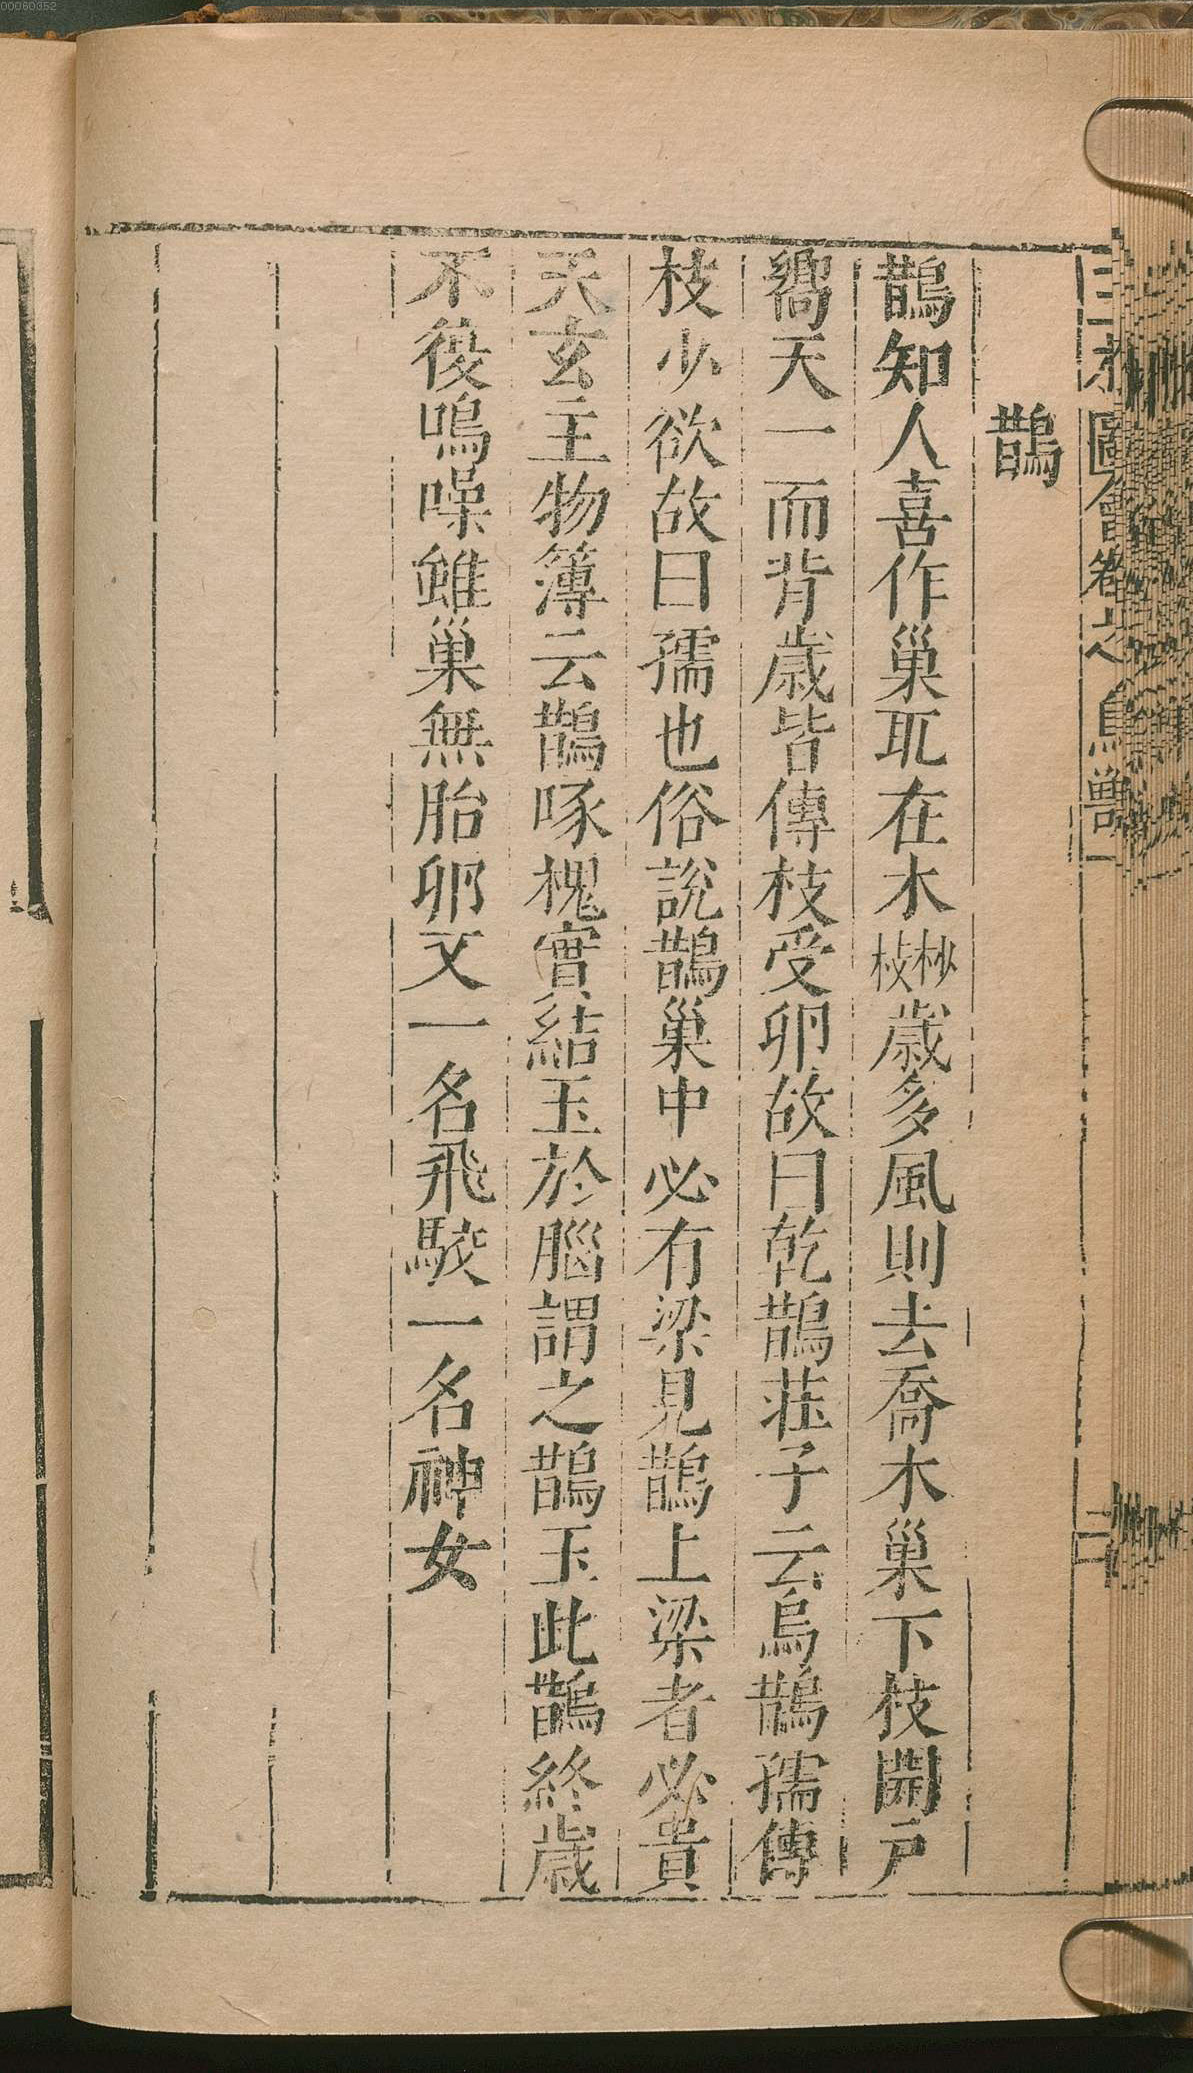 00060352
三才圖會卷之鳥獸一
二
鵲
鵲知人喜作巢取在木杪枝歲多風則去喬木巢下枝開戶
嚮天一而背歲皆傳枝受卵故曰乾鵲莊子云烏鵲孺傳
枝少欲故曰孺也俗說鵲巢中必有梁見鵲上梁者必貴
天玄主物簿云鵲啄槐實結玉於腦謂之鵲玉此鵲終歲
不復鳴噪雖巢無胎卵又一名飛駮一名神女